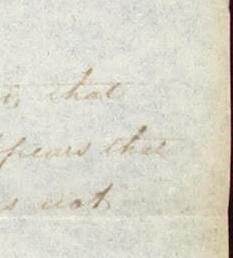 that
ppears that
s not